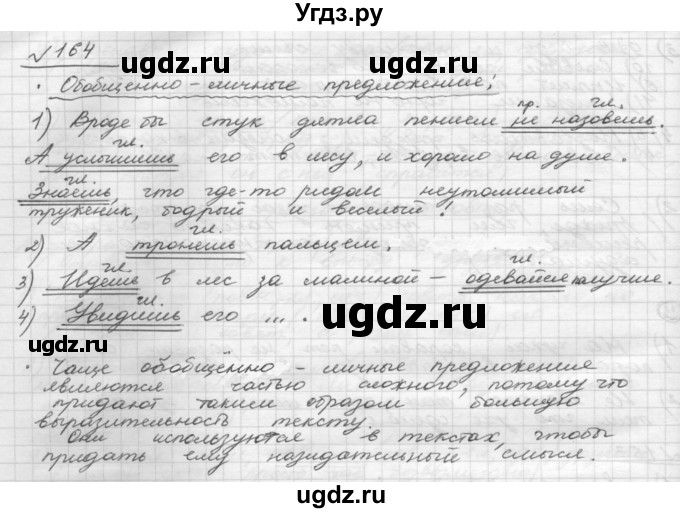 УгДЗ.ру
№164
· Обобщенно-личные предложения:
1) Вроде бы стук дятла пением не назовешь.
пр. гл.
А услышишь его в лесу, и хорошо на душе.
гл.
Знаешь, что где-то рядом неутомимый
гл.
труженик, бодрый и веселый!
гл.
2) А тронешь пальцем.
гл. гл.
3) Идешь в лес за малиной – одевайся получше.
гл.
4) Увидишь его ... .
· Чаще обобщённо-личные предложения
являются частью сложного, потому что
придают таким образом большую
выразительность тексту.
Они используются в текстах, чтобы
придать ему назидательный смысл.
ugdz.ru
ugdz.ru
ugdz.ru
ugdz.ru
ugdz.ru
ugdz.ru
ugdz.ru
ugdz.ru